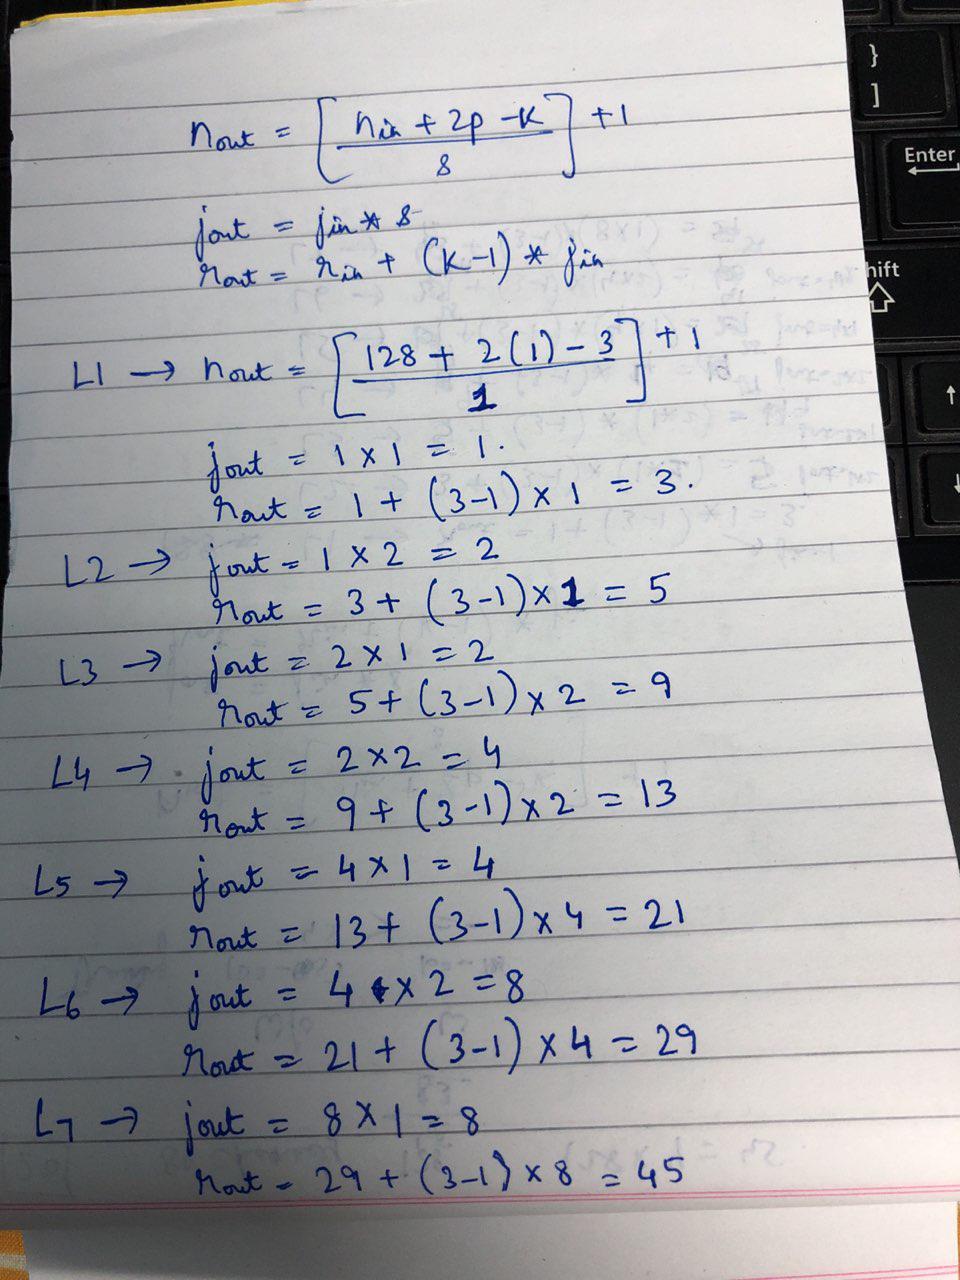 nout = [ nin + 2p - k / s ] + 1
jout = jin * s
rout = rin + (k-1) * jin
L1 → nout = [ 128 + 2(1) - 3 / 1 ] + 1
jout = 1 x 1 = 1.
rout = 1 + (3-1) x 1 = 3.
L2 → jout = 1 x 2 = 2
rout = 3 + (3-1) x 1 = 5
L3 → jout = 2 x 1 = 2
rout = 5 + (3-1) x 2 = 9
L4 → jout = 2 x 2 = 4
rout = 9 + (3-1) x 2 = 13
L5 → jout = 4 x 1 = 4
rout = 13 + (3-1) x 4 = 21
L6 → jout = 4 x 2 = 8
rout = 21 + (3-1) x 4 = 29
L7 → jout = 8 x 1 = 8
rout = 29 + (3-1) x 8 = 45
}
]
Enter
hift